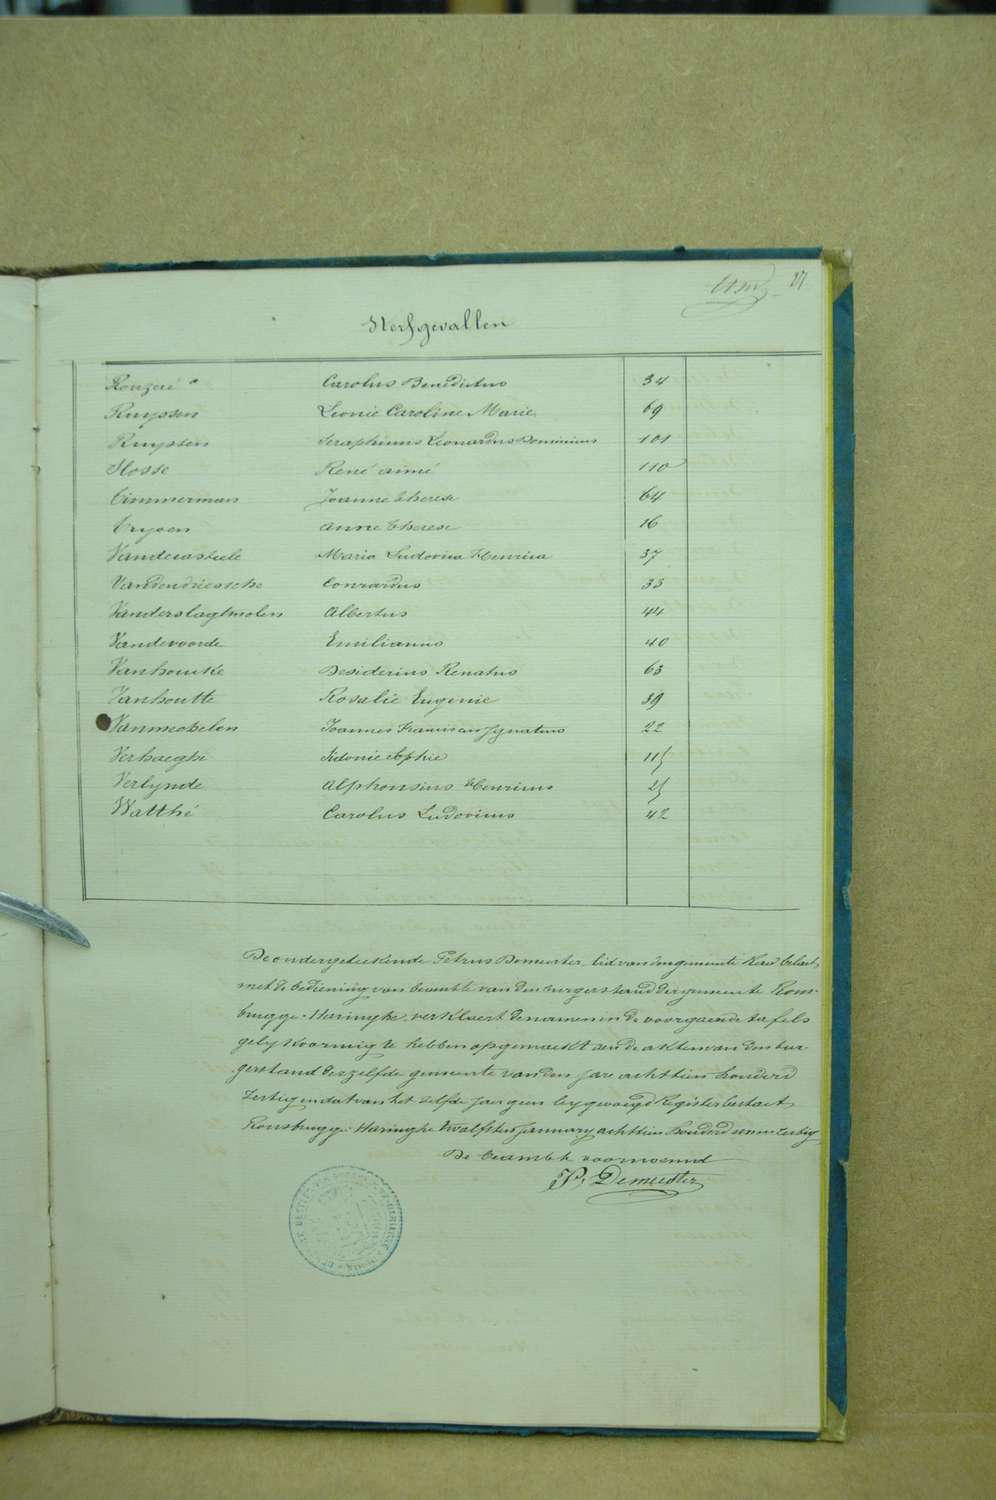 27
Sterfgevallen
Rouzeré Carolus Benedictus 34
Ruyssen Leonie Caroline Marie 69
Ruyssen Seraphinus Leonardus Dominicus 101
Slosse René aimé 110
Timmerman Joanne Therese 64
Tryoen Anne Therese 16
Vandecasteele Maria Ludovica Henrica 37
Vandendriessche Conrardus 33
Vanderslagmolen Albertus 44
Vandevoorde Emilianus 40
Vanhoucke Desiderius Renatus 63
Vanhoutte Rosalie Eugenie 39
Vanmechelen Joannes Franciscus Ignatius 22
Verhaeghe Sidonie Sophie 115
Verlynde Alphonsius Henricus 25
Watthé Carolus Ludovicus 42
De ondergeteekende Petrus Demeester, lid van den gemeente Raed belast
met de bediening van beambte van den burgerstand der gemeente Rous-
brugge-Haringhe, verklaert de namen in de voorgaende tafels
gelykvormig te hebben opgemaekt aen de akten van den bur-
gerstand dezelfde gemeente van den jare achttien honderd
zestig en dat van het zelfde jaer geen bygevoegd Register bestaet
Rousbrugge-Haringhe twalfsten January achttien honderd eenen zestig
De beambte voornoemd
P. Demeester